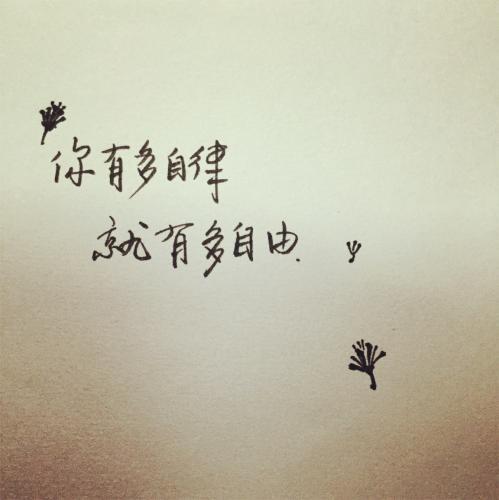 你有多自律
就有多自由